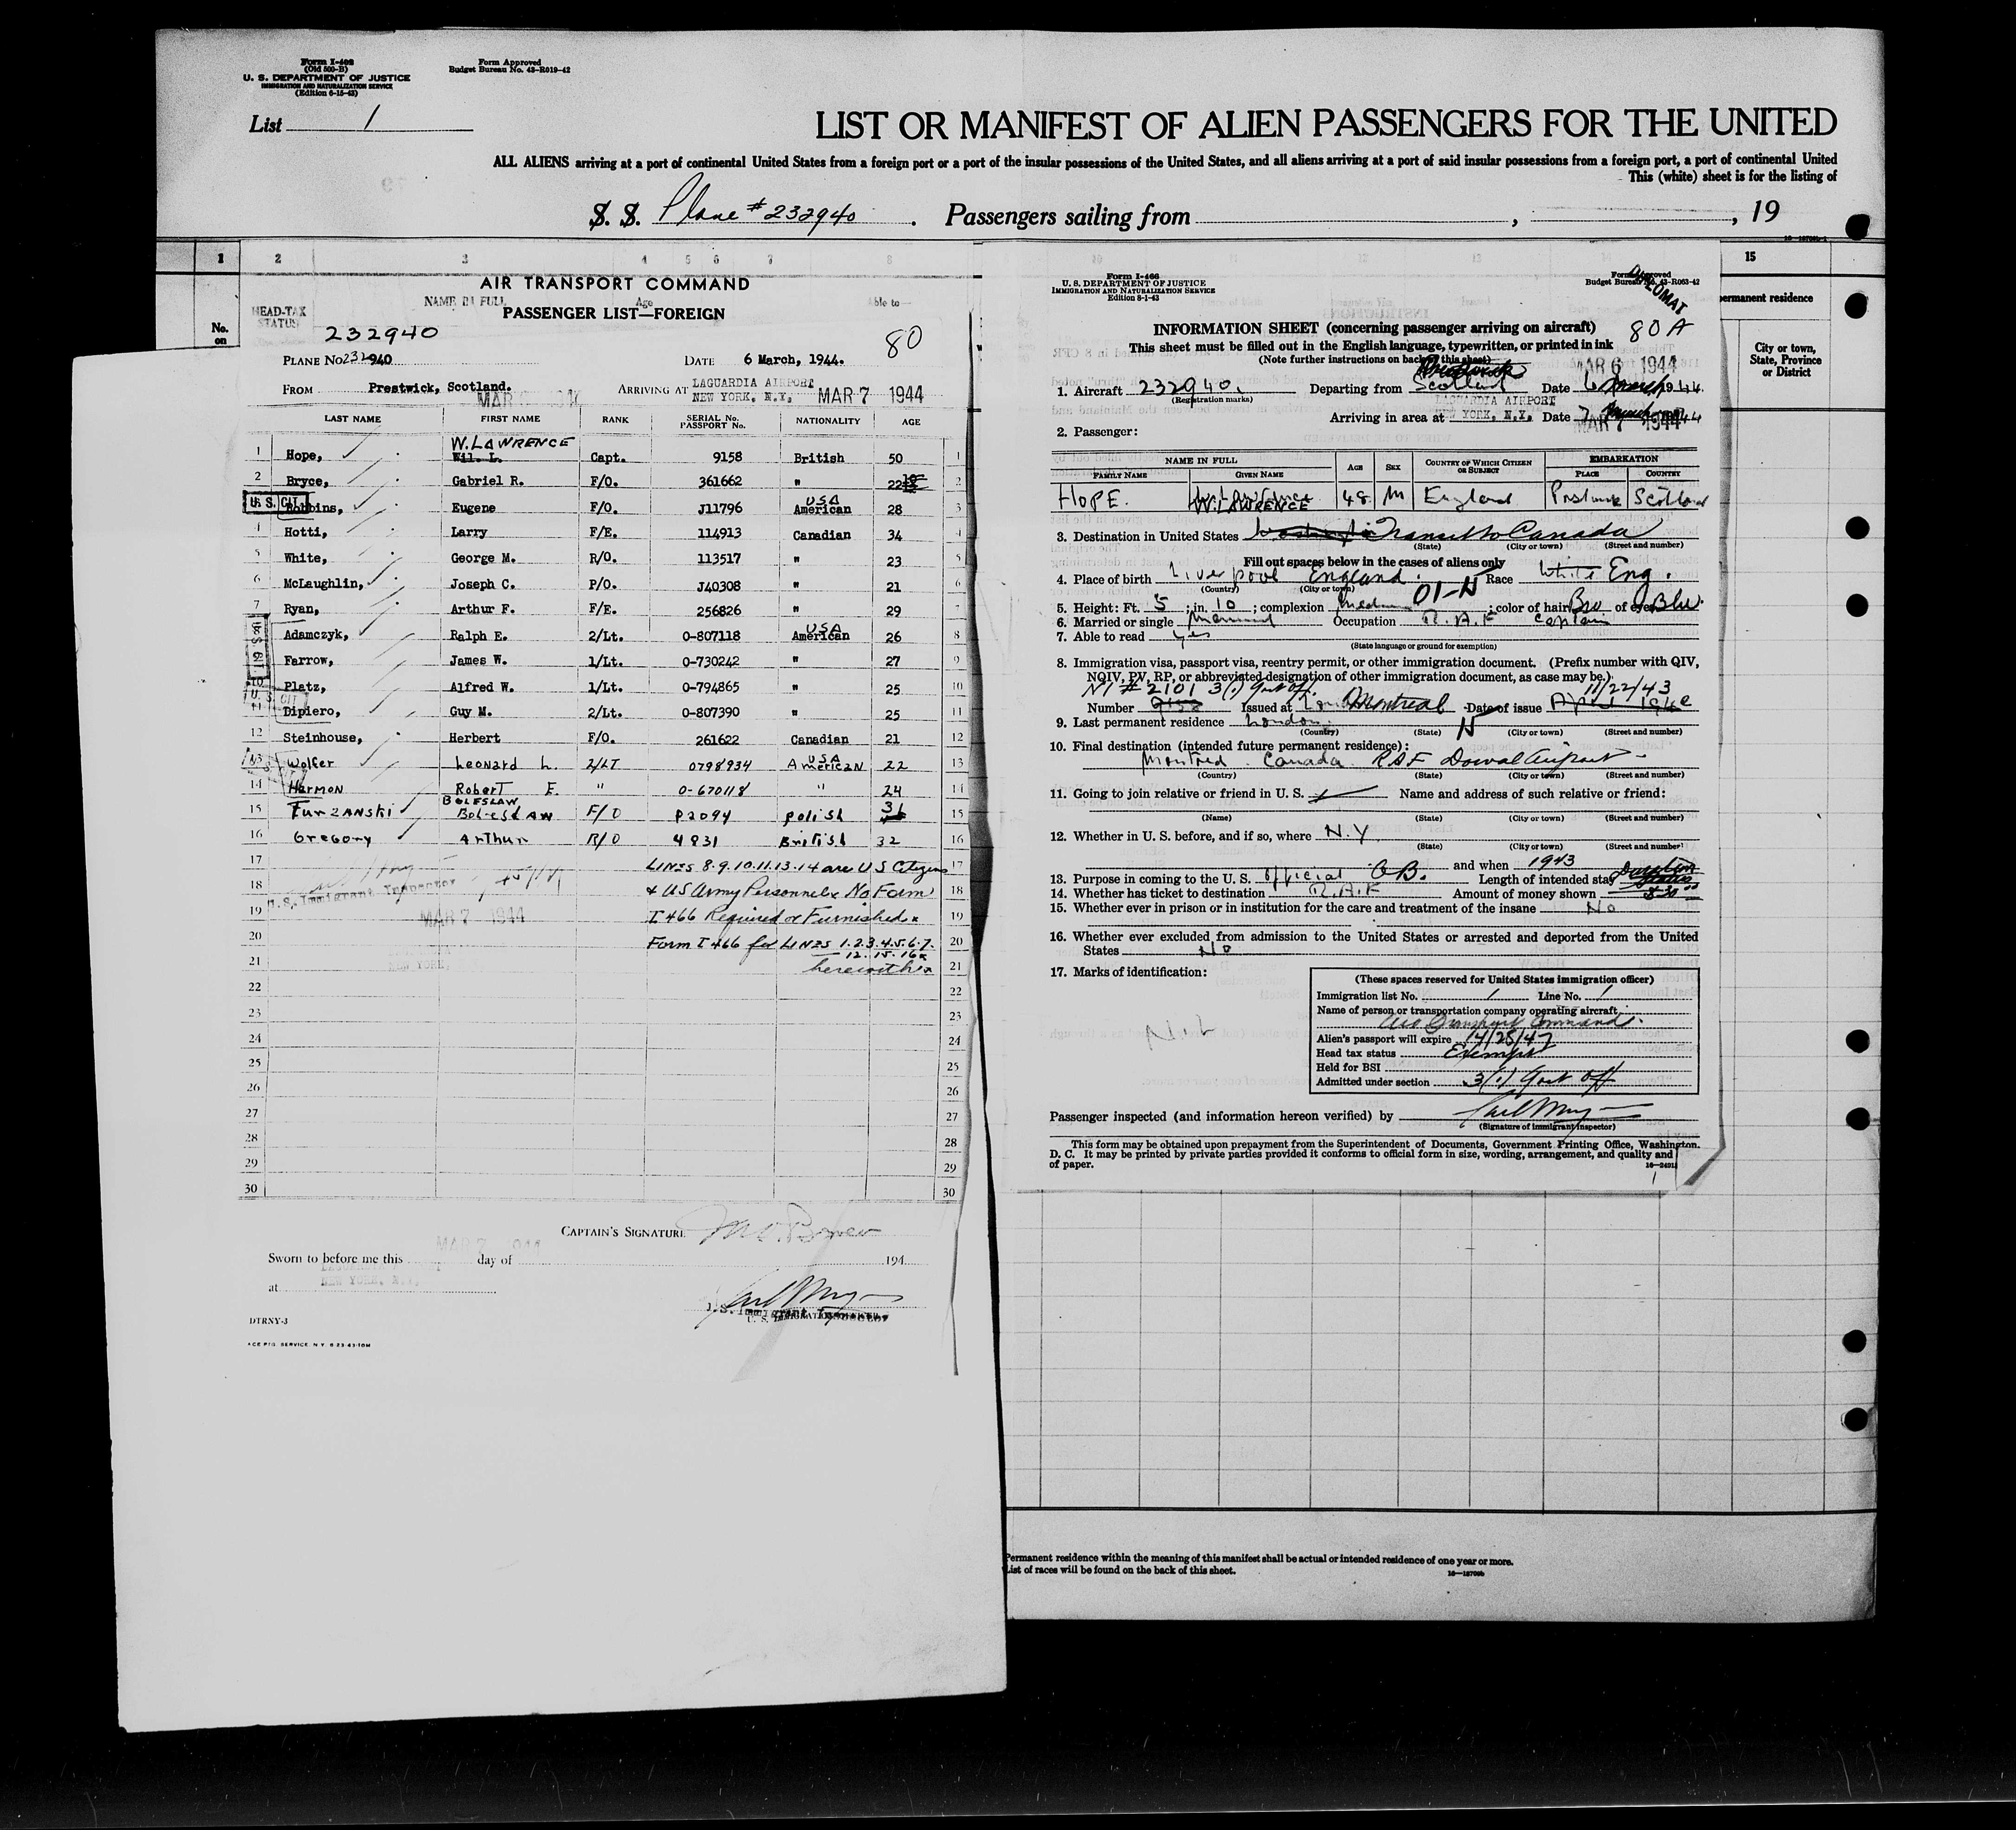 Form I-408
(Old 500-B)
U. S. DEPARTMENT OF JUSTICE
IMMIGRATION AND NATURALIZATION SERVICE
(Edition 6-15-43)
Form Approved
Budget Bureau No. 43-R019-42
List 1
LIST OR MANIFEST OF ALIEN PASSENGERS FOR THE UNITED
ALL ALIENS arriving at a port of continental United States from a foreign port or a port of the insular possessions of the United States, and all aliens arriving at a port of said insular possessions from a foreign port, a port of continental United
This (white) sheet is for the listing of
S. S. Plane # 232940. Passengers sailing from , , 19
1 2 3 4 5 6 7 8
HEAD-TAX STATUS
NAME IN FULL
Age
Able to—
No. on
AIR TRANSPORT COMMAND
PASSENGER LIST—FOREIGN
232940
80
PLANE No 232940 DATE 6 March, 1944.
FROM Prestwick, Scotland. ARRIVING AT LAGUARDIA AIRPORT NEW YORK, N.Y. MAR 7 1944
LAST NAME FIRST NAME RANK SERIAL No. PASSPORT No. NATIONALITY AGE
W. LAWRENCE
1 Hope, Wil. L. Capt. 9158 British 50 1
2 Bryce, Gabriel R. F/O. 361662 " 22 2
U. S. CIT. Robbins, Eugene F/O. J11796 USA American 28 3
4 Hotti, Larry F/E. 114913 Canadian 34 4
5 White, George M. R/O. 113517 " 23 5
6 McLaughlin, Joseph C. P/O. J40308 " 21 6
7 Ryan, Arthur F. F/E. 256826 " 29 7
Adamczyk, Ralph E. 2/Lt. 0-807118 USA American 26 8
Farrow, James W. 1/Lt. 0-730242 " 27 9
10 Platz, Alfred W. 1/Lt. 0-794865 " 25 10
11 Dipiero, Guy M. 2/Lt. 0-807390 " 25 11
12 Steinhouse, Herbert F/O. 261622 Canadian 21 12
13 Wolfer Leonard L. 2/LT 0798934 USA American 22 13
14 Harmon Robert E. " 0-670118 " 24 14
BOLESLAW
15 Furzanski Boleslaw F/O P2094 polish 31 15
16 Gregory Arthur R/O 4831 British 32 16
17 LINES 8.9.10.11.13.14 are U S Citizens 17
18 & US Army Personnel x No Form 18
19 I 466 Required or Furnished x 19
20 Form I 466 for LINES 1.2.3.4.5.6.7. 20
12. 15. 16 x
21 herewith x 21
U.S. Immigrant Inspector
MAR 7 1944
NEW YORK,
22 22
23 23
24 24
25 25
26 26
27 27
28 28
29 29
30 30
CAPTAIN'S SIGNATURE
Sworn to before me this MAR 7 1944 day of 194
at NEW YORK, N.Y.
U.S. Immigrant Inspector
DTRNY-3
ACE PTG. SERVICE. N.Y. 8-23-43-10M
Form I-466
U. S. DEPARTMENT OF JUSTICE
IMMIGRATION AND NATURALIZATION SERVICE
Edition 8-1-43
Form Approved
Budget Bureau No. 43-R063-42
80 A
INFORMATION SHEET (concerning passenger arriving on aircraft)
This sheet must be filled out in the English language, typewritten, or printed in ink
(Note further instructions on back of this sheet)
MAR 6 1944
1. Aircraft 232940. Departing from Scotland Date 6 March 1944
(Registration marks)
LAGUARDIA AIRPORT
Arriving in area at NEW YORK, N.Y. Date 7 March 1944
MAR 7 1944
2. Passenger:
NAME IN FULL AGE SEX COUNTRY OF WHICH CITIZEN OR SUBJECT EMBARKATION
FAMILY NAME GIVEN NAME PLACE COUNTRY
HOPE. W. LAWRENCE 48 M England Prstwk Scotland
3. Destination in United States Transit to Canada
(State) (City or town) (Street and number)
Fill out spaces below in the cases of aliens only
4. Place of birth Liverpool England. Race White Eng.
(Country) (City or town)
01-N
5. Height: Ft. 5; in. 10; complexion medium; color of hair Bro of eyes Blu.
6. Married or single Married Occupation R.A.F Captain
7. Able to read yes
(State language or ground for exemption)
8. Immigration visa, passport visa, reentry permit, or other immigration document. (Prefix number with QIV,
NQIV, PV, RP, or abbreviated designation of other immigration document, as case may be.)
NI # 2101 3(1) Govt off. 11/22/43
Number 9158 Issued at Montreal Date of issue
9. Last permanent residence London.
(Country) (State) (City or town) (Street and number)
10. Final destination (intended future permanent residence):
Montreal. Canada. RAF Dorval Airport
(Country) (State) (City or town) (Street and number)
11. Going to join relative or friend in U. S. Name and address of such relative or friend:
(Name) (State) (City or town) (Street and number)
12. Whether in U. S. before, and if so, where N.Y.
(State) (City or town) (Street and number)
and when 1943
13. Purpose in coming to the U. S. official OB. Length of intended stay
14. Whether has ticket to destination R.A.F Amount of money shown
15. Whether ever in prison or in institution for the care and treatment of the insane No
16. Whether ever excluded from admission to the United States or arrested and deported from the United
States No
17. Marks of identification:
NiL
(These spaces reserved for United States immigration officer)
Immigration list No. 1 Line No. 1
Name of person or transportation company operating aircraft
Air Transport Command.
Alien's passport will expire
Head tax status Exempt
Held for BSI
Admitted under section 3(1) Govt off
Passenger inspected (and information hereon verified) by
(Signature of immigrant inspector)
This form may be obtained upon prepayment from the Superintendent of Documents, Government Printing Office, Washington,
D. C. It may be printed by private parties provided it conforms to official form in size, wording, arrangement, and quality and
of paper.
15
permanent residence
City or town, State, Province or District
Permanent residence within the meaning of this manifest shall be actual or intended residence of one year or more.
List of races will be found on the back of this sheet.